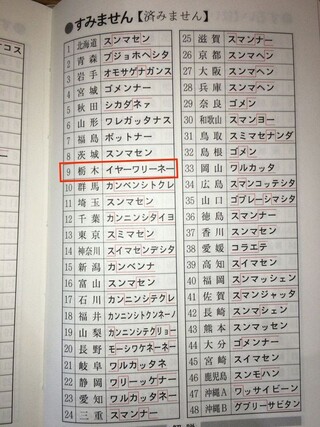 ●すみません【済みません】
1 北海道 スンマセン
2 青森 ブジョホヘシタ
3 岩手 オモサゲナガンス
4 宮城 ゴメンナー
5 秋田 シカダネァ
6 山形 ワレガッタナス
7 福島 ボットナー
8 茨城 スンマセン
9 栃木 イヤーワリーネー
10 群馬 カンベンシトクレ
11 埼玉 スンマセン
12 千葉 カンニンシタイヨ
13 東京 スミマセン
14 神奈川 スイマセンデシタ
15 新潟 カンベンナ
16 富山 スンマセン
17 石川 カンニンシテクレ
18 福井 カンニンシトクンネー
19 山梨 カンニンシテクリョー
20 長野 モーシワケネーネー
21 岐阜 ワルカッタネ
22 静岡 ワリーッケナー
23 愛知 ワルカッタネ
24 三重 スマンナー
25 滋賀 スマンナー
26 京都 スマンヘン
27 大阪 スンマヘン
28 兵庫 スンマヘン
29 奈良 ゴメン
30 和歌山 スマンヨー
31 鳥取 スミマセナンダ
32 島根 ゴメン
33 岡山 ワルカッタ
34 広島 スマンコッテシタ
35 山口 ゴブレーシマシタ
36 徳島 スマンナー
37 香川 スンマセン
38 愛媛 コラエテ
39 高知 スイマセン
40 福岡 スンマッシェン
41 佐賀 スマンジャッタ
42 長崎 スンマシェン
43 熊本 スンマッセン
44 大分 ゴメンナー
45 宮崎 スイマセン
46 鹿児島 スンモハン
47 沖縄A ワッサイビーン
48 沖縄B グブリーサビタン